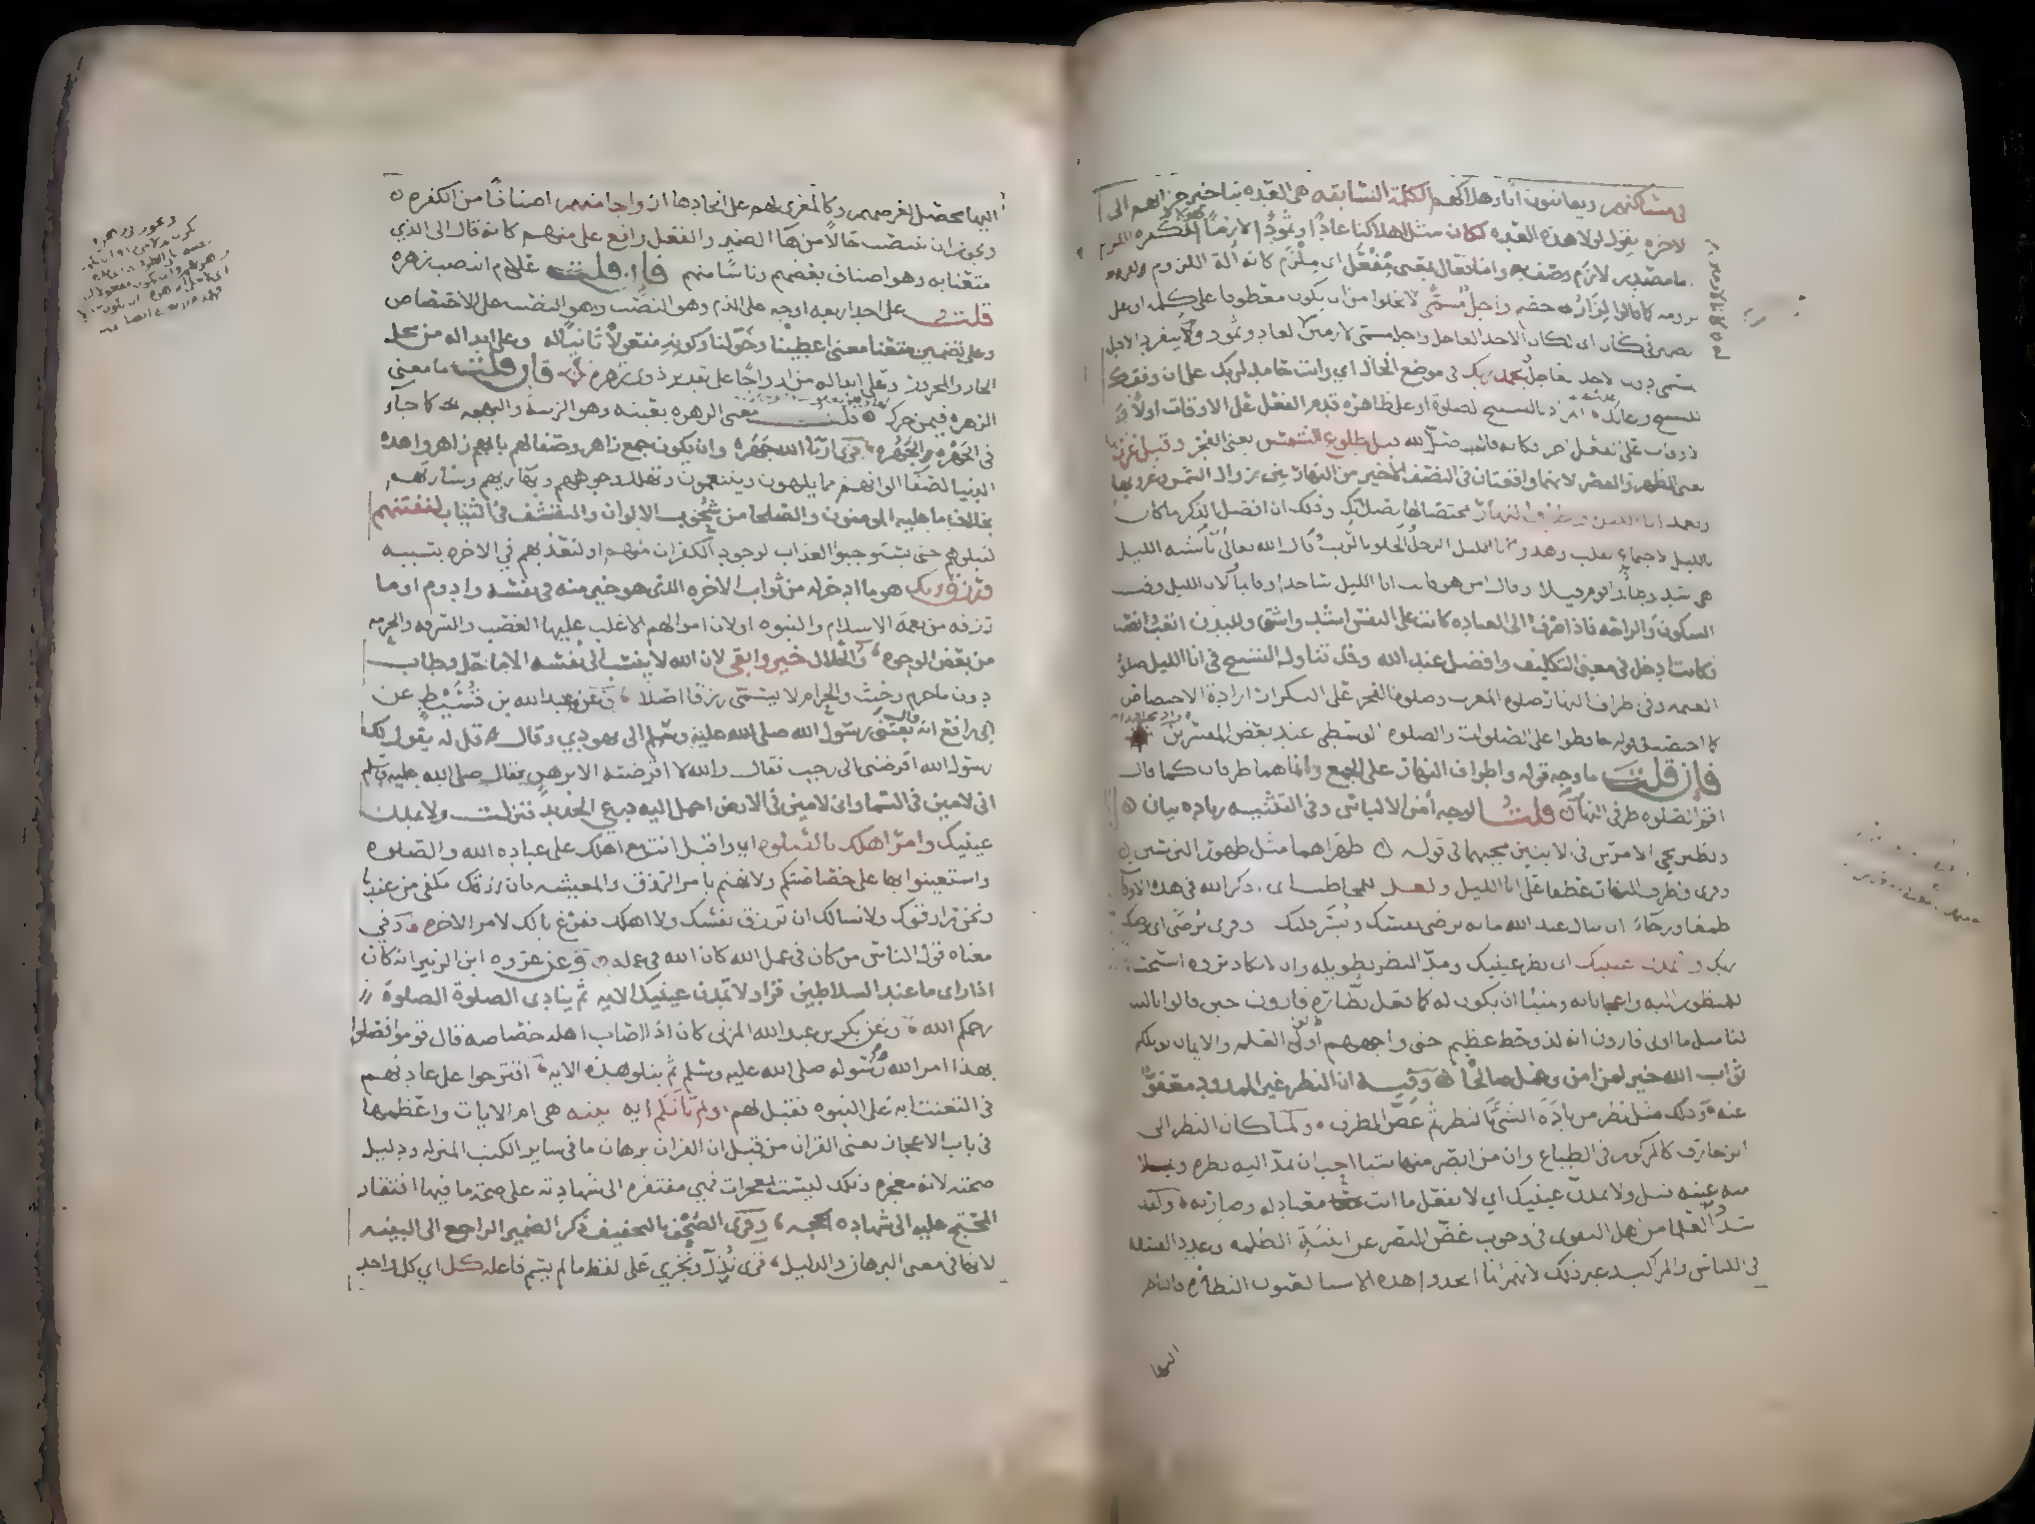 في مساكنهم ويعاينون اثار هلاكهم الكلمة السابقه هي العده بتاخير جزائهم الى
الاخره يقول لولا هذه العده لكان مثل اهلاكنا عادًا وثمودًا لازمًا لهؤلاء الكفره اللزام
اما مصدر لازم وصف به واما فعال بمعنى مِفْعَل اي مِلْزَم كانه الة اللزوم
كما قالوا لِزَازُ خصم واجل مُسَمًّى لا يخلوا من ان يكون معطوفا على كلمه او على
الضمير في كان اى لكان الاخذ العاجل واجل مسمى لازمين لعاد وثمود ولم ينفرد الاجل
بحمد ربك في موضع الحال اي وانت حامد لربك على ان وفقك
للتسبيح واعانك والمراد بالتسبيح الصلوة او على ظاهره قدم الفعل على الاوقات اولا
قبل طلوع الشمس يعنى الفجر وقبل غروبها
يعني الظهر والعصر لانهما واقعتان في النصف الاخير من النهار بين زوال الشمس وغروبها
وتعمد انا الليل واطراف النهار مختصا لها بصلاتك وذلك ان افضل الذكر ما كان
بالليل لاجتماع القلب وهدو الرجل والخلو بالرب قال الله تعالى ان ناشئه الليل
هي اشد وطأ واقوم قيلا وقال امن هو قانت انا الليل ساجدا وقايما ولان الليل وقت
السكون والراحه فاذا صرف الى العباده كانت على النفس اشد واشق وللبدن اتعب وانصب
فكانت ادخل في معنى التكليف وافضل عند الله وقد تناول التسبيح في انا الليل صلوة
العتمه وفي اطراف النهار صلوة المغرب وصلوة الفجر على التكرار ارادة الاختصاص
كما اختصت في قوله حافظوا على الصلوات والصلوه الوسطى عند بعض المفسرين
فان قلت ما وجه قوله واطراف النهار على الجمع وانما هما طرفان كما قال
اقم الصلوه طرفي النهار قلت الوجه امن الالباس وفي التثنيه زياده بيان
ونظير مجي الامرين في الايتين مجيهما في قوله ظهراهما مثل ظهور الترسين
وقرى واطراف النهار عطفا على انا الليل ولعل للمخاطب اي اذكر الله في هذه الاوقات
طمعا ورجاءً ان تنال عند الله ما به ترضى نفسك ويُسَر قلبك وقرى تُرضَى اى يرضيك
ربك ولا تمدن عينيك اى نظر عينيك ومد النظر تطويله وان لا يكاد يرده استحسانا
للمنظور اليه واعجابا به وتمنيا ان يكون له كما فعل نظارة قارون حين قالوا يا ليت
لنا مثل ما اوتى قارون انه لذو حظ عظيم حتى واجههم اولوا العلم والايمان بويلكم
ثواب الله خير لمن امن وعمل صالحًا وفيه ان النظر غير الممدود معفوٌّ
عنه وذلك مثل نظر من باده الشئ بالنظر ثم غض الطرف ولما كان النظر الى
الزخارف كالمركوز في الطباع وان من ابصر منها شيا احب ان يمد اليه نظره ويملا
منه عينه قيل ولا تمدن عينيك اي لا تفعل ما انت معتاد له وضار به ولقد
شدد العلما من اهل التقوى في وجوب غض البصر عن ابنية الظلمه وعدد الفسقه
في اللباس والمراكب وغير ذلك لانهم انما اتخذوا هذه الاشيا لعيون النظارة فالناظر
اليها
اليها محصل لغرضهم وكالمغرى لهم على اتخاذها ازواجا منهم اصنافًا من الكفره
ويجوز ان ينتصب حالاً من هاء الضمير والفعل واقع على منهم كانه قال الى الذي
متعنا به وهو اصناف بعضهم وناسًا منهم فان قلت علام انتصب زهرة
قلت على احد اربعه اوجه على الذم وهو النصب على الاختصاص
وعلى تضمين متعنا معنى اعطينا وخولنا وكونه مفعولاً ثانياً له وعلى ابداله من محل
الجار والمجرور وعلى ابداله من ازواجًا على تقدير ذوى زهره فان قلت ما معنى
الزهره فيمن حرك قلت معنى الزهره بعينه وهو الزينة والبهجه كما جاء
في الجَهْره والجَهَره قرى ارنا الله جَهَرة وان يكون جمع زاهر وصفا لهم بانهم زاهروا هذه
الدنيا لصفا الوانهم مما يلهون ويتنعمون وتهلل وجوههم وبهاء زيهم وشارتهم
بخلاف ما عليه المومنون والصلحا من شحوب الالوان والتقشف في الثياب لنفتنهم
لنبلوهم حتى يستوجبوا العذاب لوجود الكفران منهم او لنعذبهم في الاخره بسببه
ورزق ربك هو ما ادخر له من ثواب الاخره الذي هو خير منه في نفسه وادوم او ما
رزقه من نعمة الاسلام والنبوه او لان اموالهم الاغلب عليها الغصب والسرقه والحرمه
من بعض الوجوه والحلال خير وابقى لان الله لا ينسب الى نفسه الا ما حل وطاب
دون ما حرم وخبث والحرام لا يسمى رزقا اصلا وعن عبد الله بن قُسَيْط عن
ابى رافع انه بعثنى رسول الله صلى الله عليه وسلم الى يهودي وقال قل له يقول لك
رسول الله اقرضنى الى رجب فقال والله لا اقرضته الا برهن فقال صلى الله عليه وسلم
انى لامين في السما وانى لامين في الارض احمل اليه درعي الحديد فنزلت ولا تمدن
عينيك وامر اهلك بالصلوه اي واقبل انت مع اهلك على عباده الله والصلوه
واستعينوا بها على خصاصتكم ولا تهتم بامر الرزق والمعيشه فان رزقك مكفي من عندنا
ونحن رازقوك ولا نسالك ان ترزق نفسك ولا اهلك ففرغ بالك لامر الاخره وفي
معناه قول الناس من كان في عمل الله كان الله في عمله وعن عروه ابن الزبير انه كان
اذا راى ما عند السلاطين قرا ولا تمدن عينيك الايه ثم ينادى الصلوة الصلوة
رحمكم الله وعن بكر بن عبد الله المزنى كان اذا اصاب اهله خصاصه قال قوموا فصلوا
بهذا امر الله رسوله صلى الله عليه وسلم ثم يتلو هذه الايه اقترحوا على عادتهم
في التعنت ايه على النبوه فقيل لهم اولم تاتكم ايه بينه هى ام الايات واعظمها
في باب الاعجاز يعنى القران من قبل ان القران برهان ما في ساير الكتب المنزله ودليل
صحته لانه معجزه وتلك ليست بمعجزات فهى مفتقره الى شهادته على صحة ما فيها افتقار
المحتج عليه الى شهاده الحجه وقرى الصُحْف بالتخفيف ذكر الضمير الراجع الى البينه
لانها في معنى البرهان والدليل قرى نُذَلّ ونُخزى على لفظ ما لم يسم فاعله كل اي كل واحد